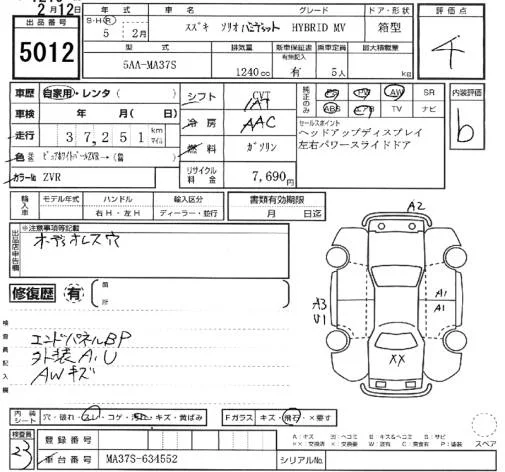 2月12日
出品番号
5012
年式 車名 グレード ドア・形状
S・H・R 5 2月 スズキ ソリオバンディット HYBRID MV 箱型
型式 排気量 新車保証書 有無記入 乗車定員 最大積載量
5AA-MA37S 1240cc 有 5人 kg
評価点
車歴 自家用・レンタ( )
シフト
純正のみ PS PW AW SR
ABS エアB TV ナビ
内装評価
b
車検 年 月 日
冷房 AAC
走行 37,251 km マイル
燃料 ガソリン
セールスポイント
ヘッドアップディスプレイ
左右パワースライドドア
色 ピュアホワイトパールZVR→(
カラーNo ZVR
リサイクル料金 7,690円
輸入車 モデル年式 ハンドル 輸入区分
右H・左H ディーラー・並行
書類有効期限
月 日迄
出品店申告欄
※注意事項等記載
オーディオレス穴
修復歴 有
箇所
検査員記入欄
エンドパネルBP
外装A.U
AWキズ
A2
A3
U1
A1
A1
XX
内装シート 穴・破れ・スレ・コゲ・汚れ・キズ・黄ばみ
Fガラス キズ・飛石・×要す
スペア
検査員
23
登録番号
車台番号 MA37S-634552
シリアルNo.